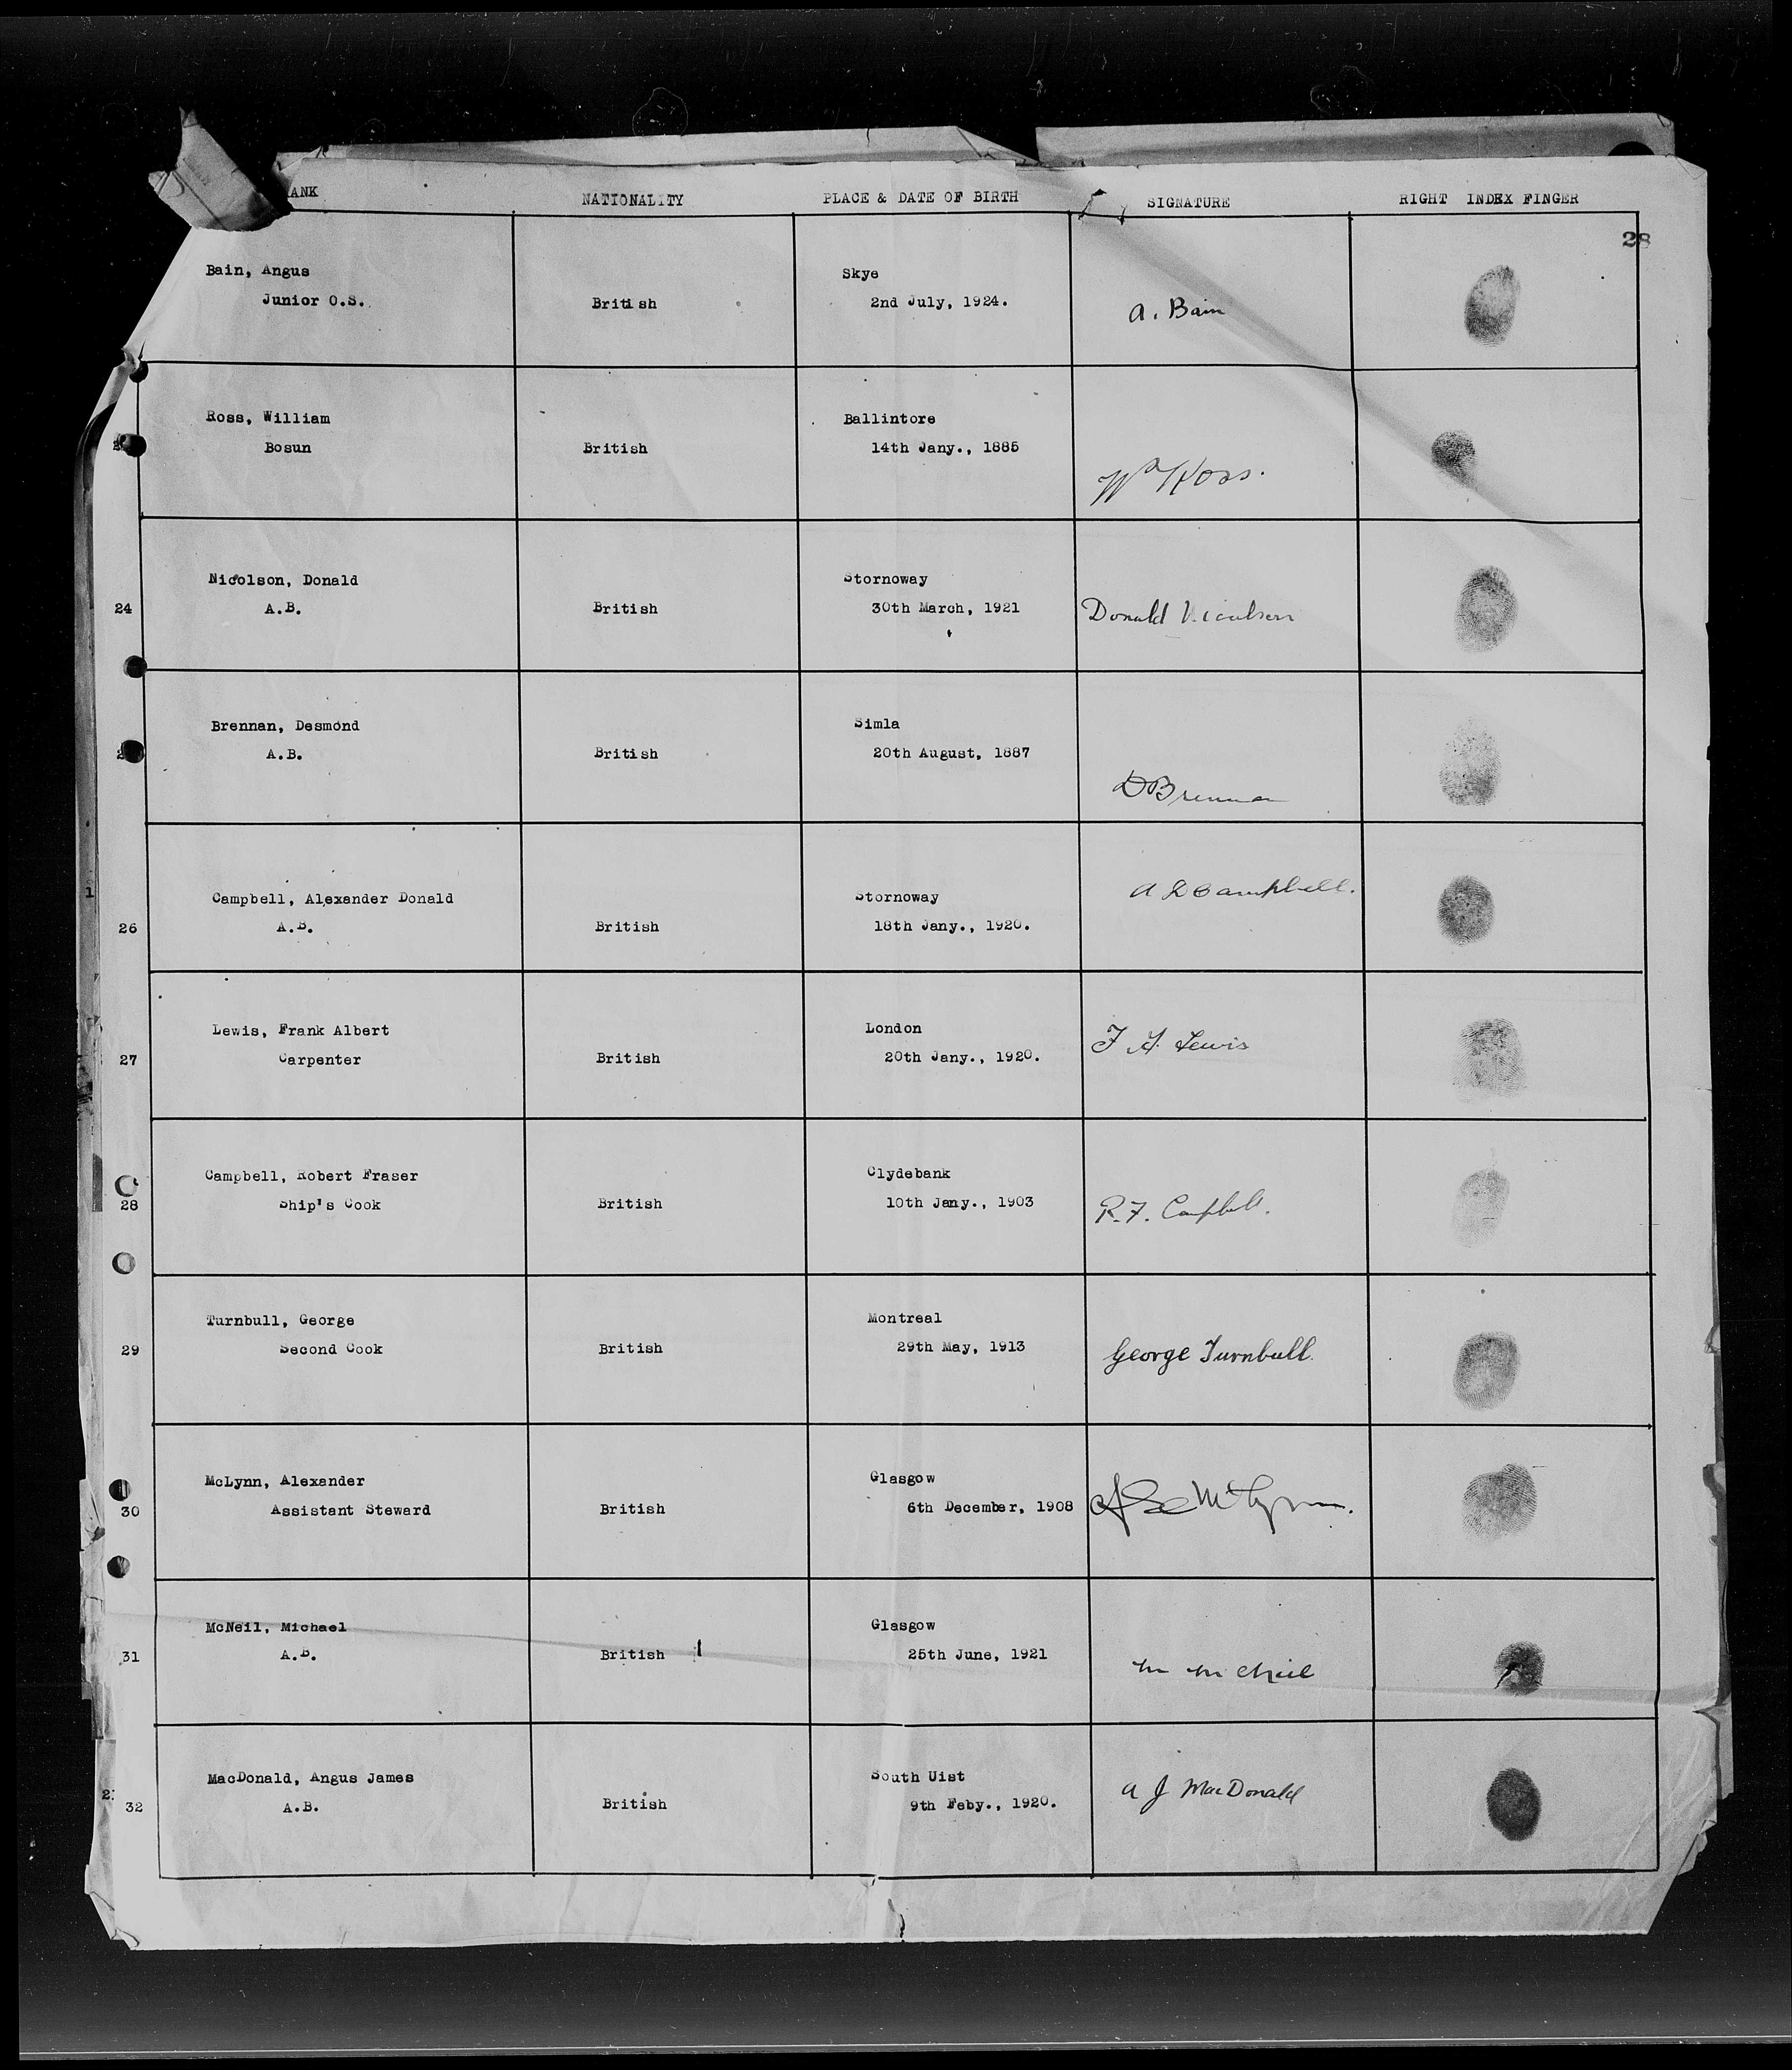 ANK NATIONALITY PLACE & DATE OF BIRTH SIGNATURE RIGHT INDEX FINGER
28
Bain, Angus Skye
Junior O.S. British 2nd July, 1924. A. Bain
Ross, William Ballintore
Bosun British 14th Jany., 1885 Wm Ross.
Nicolson, Donald Stornoway
24 A.B. British 30th March, 1921 Donald Nicolson
Brennan, Desmond Simla
A.B. British 20th August, 1887 D Brennan
Campbell, Alexander Donald Stornoway A D Campbell.
26 A.B. British 18th Jany., 1920.
Lewis, Frank Albert London F A Lewis
27 Carpenter British 20th Jany., 1920.
Campbell, Robert Fraser Clydebank
28 Ship's Cook British 10th Jany., 1903 R.F. Campbell.
Turnbull, George Montreal
29 Second Cook British 29th May, 1913 George Turnbull.
McLynn, Alexander Glasgow
30 Assistant Steward British 6th December, 1908 Alex McLynn.
McNeil, Michael Glasgow
31 A.B. British 25th June, 1921 M McNeil
MacDonald, Angus James South Uist A J MacDonald
32 A.B. British 9th Feby., 1920.